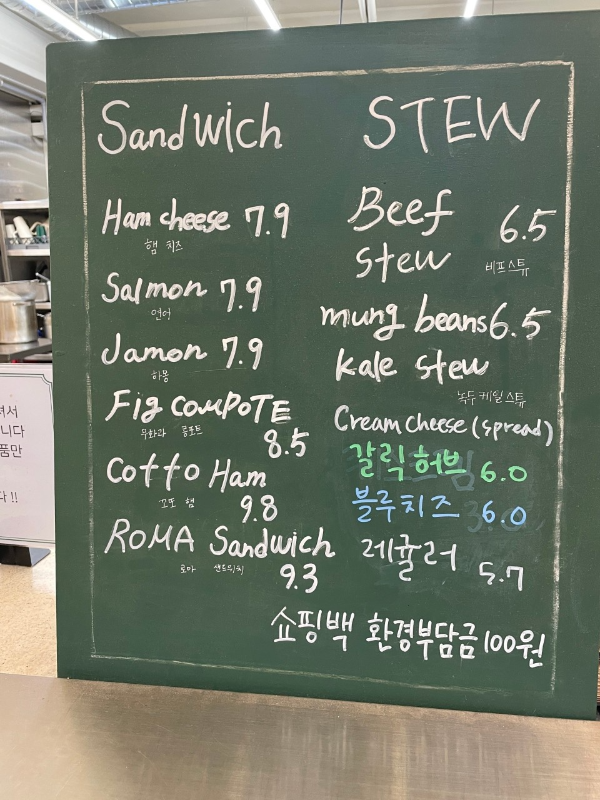 Sandwich
Ham cheese 7.9
햄 치즈
Salmon 7.9
연어
Jamon 7.9
하몽
Fig COMPOTE
무화과 콩포트
8.5
Cotto Ham
꼬또 햄
9.8
ROMA Sandwich
로마 샌드위치
9.3
STEW
Beef
stew 6.5
비프스튜
mung beans 6.5
kale stew
녹두케일스튜
Cream cheese (spread)
갈릭허브 6.0
블루치즈 6.0
레귤러 5.7
쇼핑백 환경부담금 100원
셔서
니다
품만
다!!